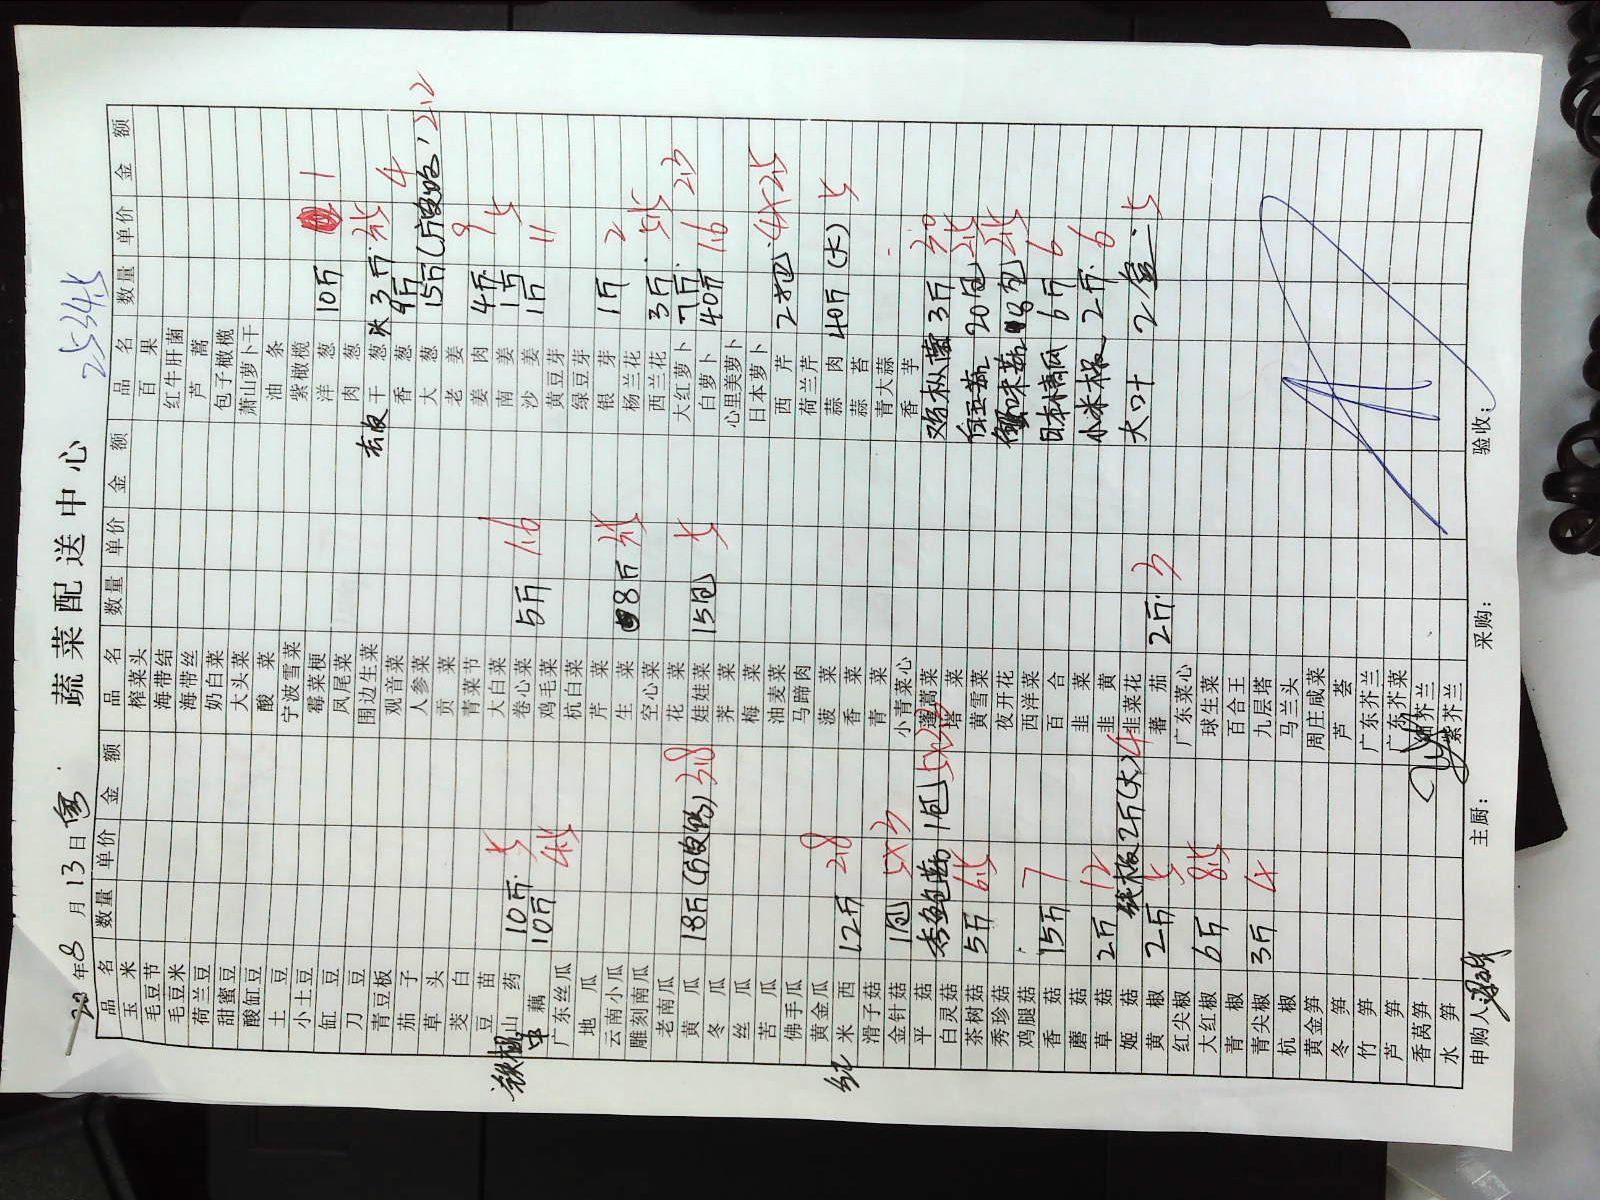 蔬菜配送中心
25345
8月13日
品名 数量 单价 金额
玉米
毛豆节
毛豆米
荷兰豆
甜蜜豆
酸缸豆
土豆
小土豆
缸豆
刀豆
青豆板
茄子
草头
茭白
豆苗
铁棍山药 10斤 5
中藕 10斤 4.5
广东丝瓜
地瓜
云南小瓜
雕刻南瓜
老南瓜
黄瓜 18斤 3.8
冬瓜
丝瓜
苦瓜
佛手瓜
黄金瓜
红米西 12斤 2.8
滑子菇
金针菇 1包 5x3
平菇 1包
白灵菇
茶树菇 5斤 6.5
秀珍菇
鸡腿菇
香菇 15斤 7
蘑菇
草菇 2斤 12
姬菇 2斤(大) 4
黄椒 2斤 5
红尖椒
大红椒 6斤 8.5
青椒
青尖椒 3斤 4
杭椒
黄金笋
冬笋
竹笋
芦笋
香莴笋
水笋
申购人:
品名 数量 单价 金额
榨菜头
海带结
海带丝
奶白菜
大头菜
酸菜
宁波雪菜
霉菜梗
凤尾菜
围边生菜
观音菜
人参菜
贡菜
青菜节
大白菜
卷心菜 5斤 1.6
鸡毛菜
杭白菜
芹菜
生菜 8斤 3.5
空心菜
花菜
娃娃菜 15包 5
荠菜
梅菜
油麦菜
马蹄肉
菠菜
香菜
青菜
小青菜心
蓬蒿菜
塔菜
黄雪菜
夜开花
西洋菜
百合
韭菜
韭黄
韭菜花
蕃茄 2斤 3
广东菜心
球生菜
百合王
九层塔
马兰头
周庄咸菜
芦荟
广东芥兰
广东芥菜
细芥兰
紫芥兰
主厨:
采购:
品名 数量 单价 金额
百果
红牛肝菌
芦蒿
包子橄榄
萧山萝卜干
油条
紫橄榄
洋葱 10斤 1
肉葱
去皮干葱头 3斤 3.5
香葱 9斤 4
大葱 15斤 2.2
老姜
姜肉 4斤 9
南姜 1斤 5
沙姜 1斤 11
黄豆芽
绿豆芽
银芽 1斤 2
杨兰花
西兰花 3斤 5.5
大红萝卜 7斤 2.3
白萝卜 40斤 1.6
心里美萝卜
日本萝卜
西芹 4x2.5
荷兰芹
蒜肉 40斤(大) 5
蒜苔
青大蒜
香芋
鸡枞菌 3斤 30
白玉菇 20包 2.5
蟹味菇 包 2.5
日本南瓜 6斤 6
小米椒 2斤 6
2盒 5
验收: